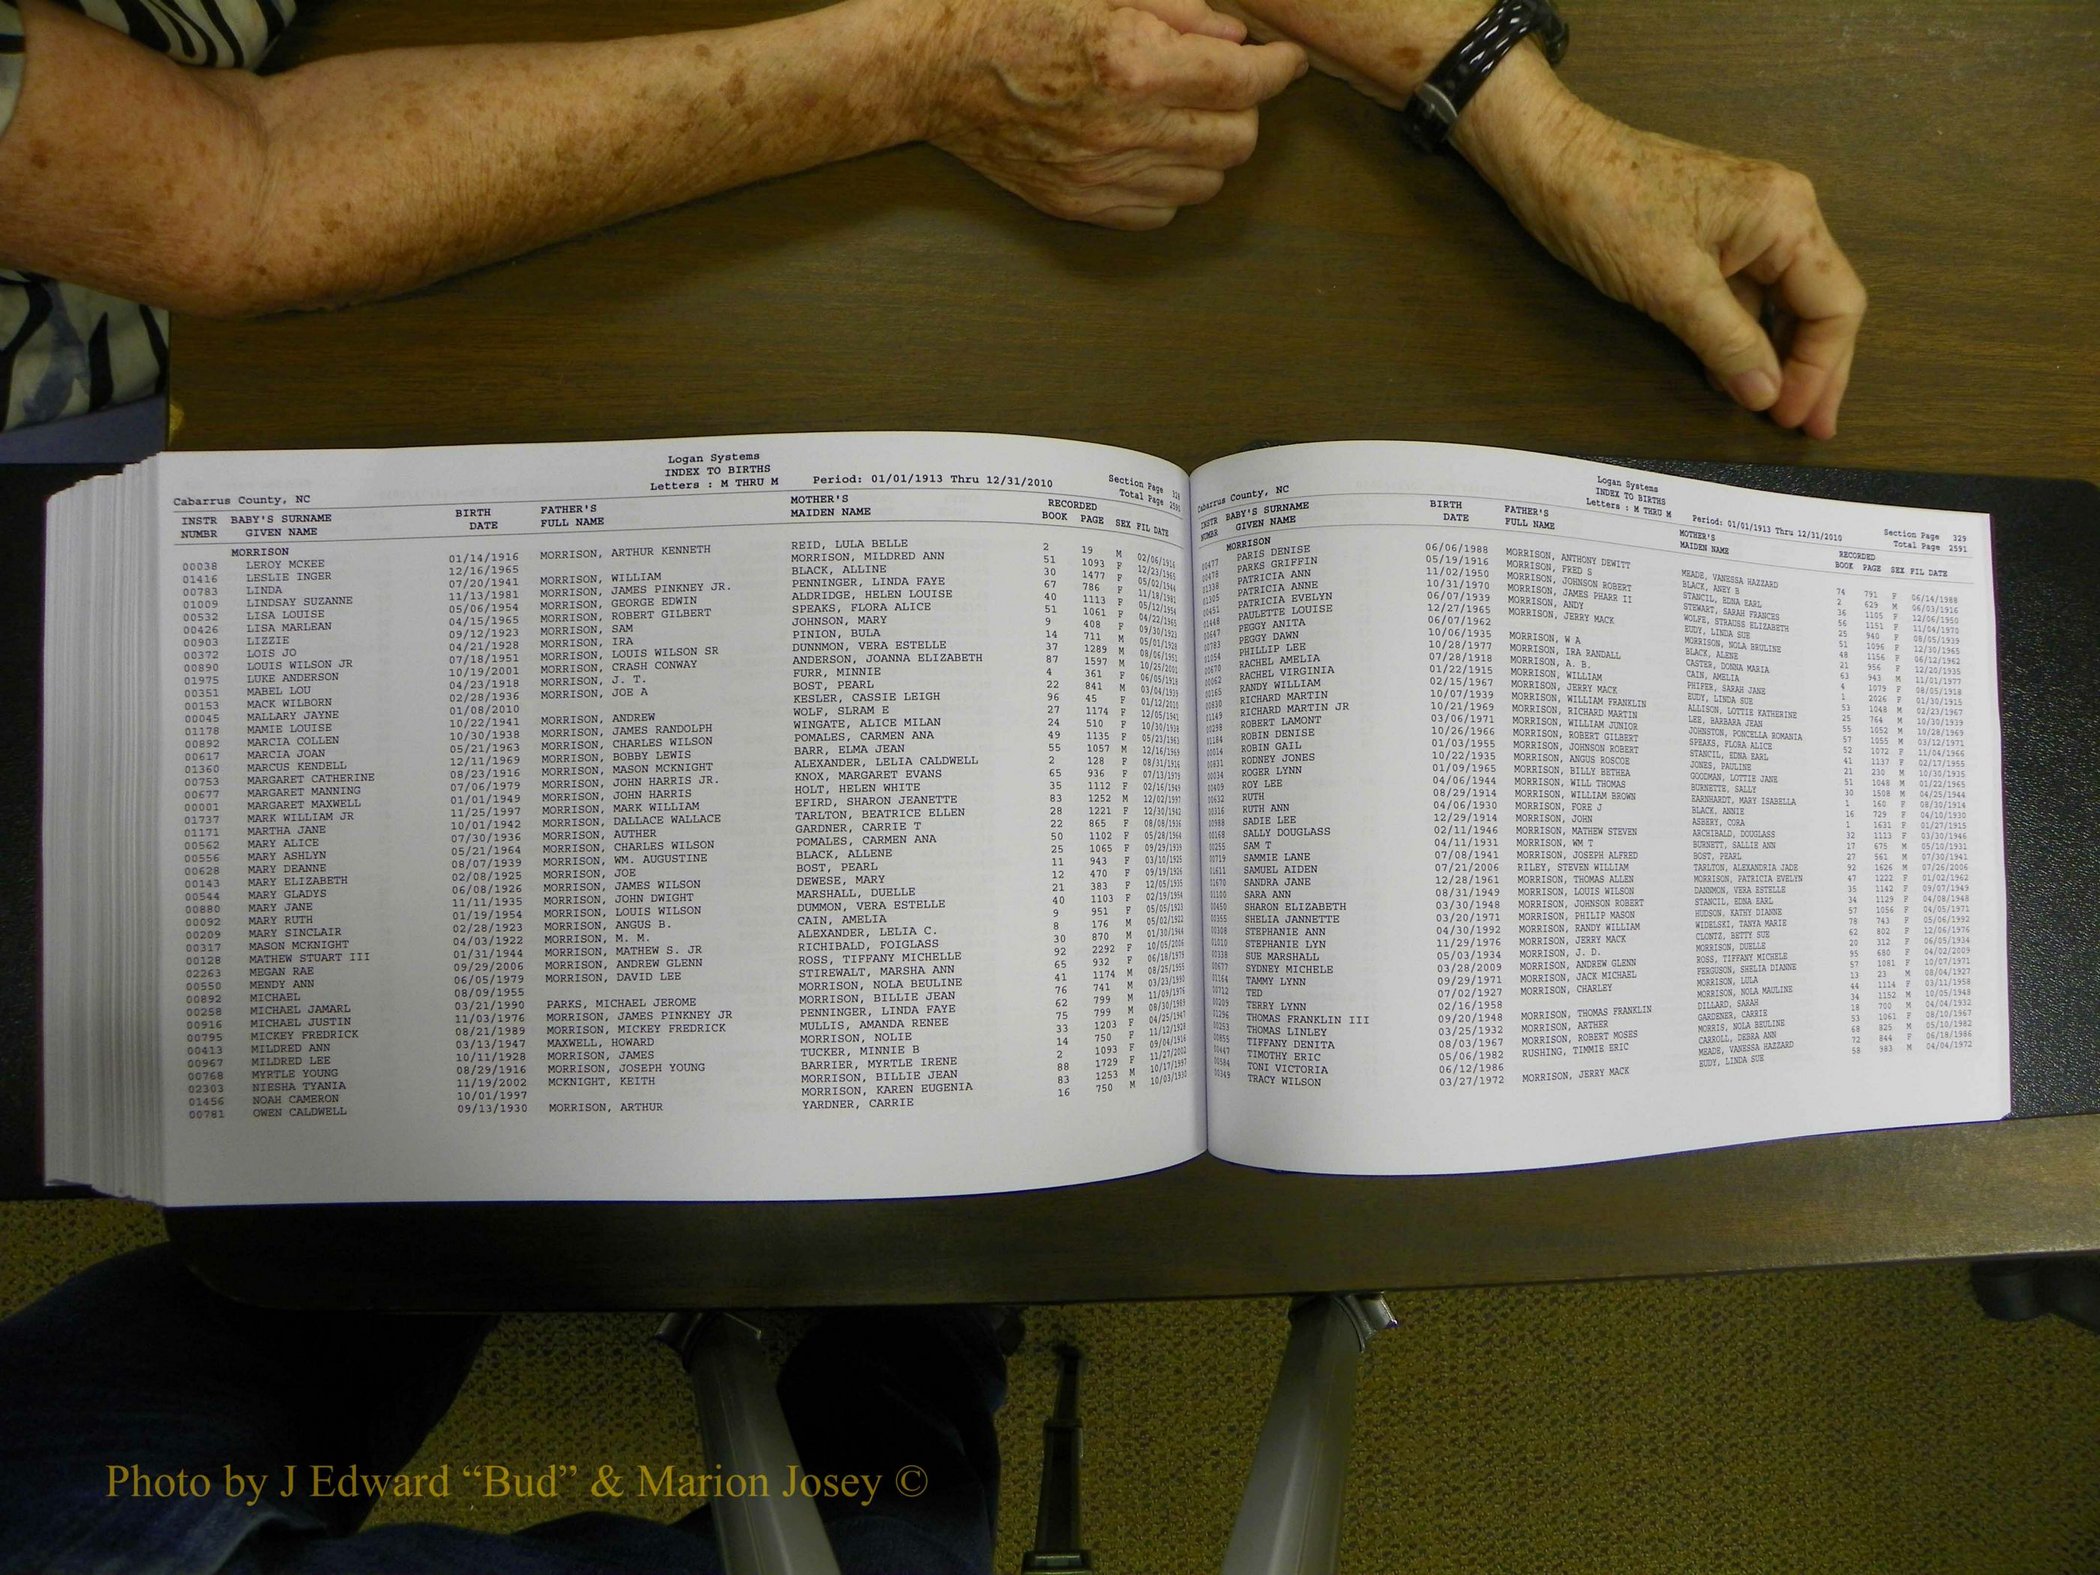 Logan Systems
INDEX TO BIRTHS
Letters : M THRU M Period: 01/01/1913 Thru 12/31/2010
Section Page 328
Total Page 2591
Cabarrus County, NC
INSTR BABY'S SURNAME BIRTH FATHER'S MOTHER'S RECORDED
NUMBR GIVEN NAME DATE FULL NAME MAIDEN NAME BOOK PAGE SEX FIL DATE
MORRISON
00038 LEROY MCKEE 01/14/1916 MORRISON, ARTHUR KENNETH REID, LULA BELLE 2 19 M 02/06/1916
01416 LESLIE INGER 12/16/1965 MORRISON, MILDRED ANN 51 1093 F 12/23/1965
00783 LINDA 07/20/1941 MORRISON, WILLIAM BLACK, ALLINE 30 1477 F 05/02/1944
01009 LINDSAY SUZANNE 11/13/1981 MORRISON, JAMES PINKNEY JR. PENNINGER, LINDA FAYE 67 786 F 11/18/1981
00532 LISA LOUISE 05/06/1954 MORRISON, GEORGE EDWIN ALDRIDGE, HELEN LOUISE 40 1113 F 05/12/1954
00426 LISA MARLEAN 04/15/1965 MORRISON, ROBERT GILBERT SPEAKS, FLORA ALICE 51 1061 F 04/22/1965
00903 LIZZIE 09/12/1923 MORRISON, SAM JOHNSON, MARY 9 408 F 09/30/1923
00372 LOIS JO 04/21/1928 MORRISON, IRA PINION, BULA 14 711 M 05/01/1928
00890 LOUIS WILSON JR 07/18/1951 MORRISON, LOUIS WILSON SR DUNNMON, VERA ESTELLE 37 1289 M 08/06/1951
01975 LUKE ANDERSON 10/19/2001 MORRISON, CRASH CONWAY ANDERSON, JOANNA ELIZABETH 87 1597 M 10/25/2001
00351 MABEL LOU 04/23/1918 MORRISON, J. T. FURR, MINNIE 4 361 F 06/05/1918
00153 MACK WILBORN 02/28/1936 MORRISON, JOE A BOST, PEARL 22 841 M 03/04/1936
00045 MALLARY JAYNE 01/08/2010 KESLER, CASSIE LEIGH 96 45 F 01/12/2010
01178 MAMIE LOUISE 10/22/1941 MORRISON, ANDREW WOLF, SLRAM E 27 1174 F 12/05/1941
00892 MARCIA COLLEN 10/30/1938 MORRISON, JAMES RANDOLPH WINGATE, ALICE MILAN 24 510 F 10/30/1938
00617 MARCIA JOAN 05/21/1963 MORRISON, CHARLES WILSON POMALES, CARMEN ANA 49 1135 F 05/23/1963
01360 MARCUS KENDELL 12/11/1969 MORRISON, BOBBY LEWIS BARR, ELMA JEAN 55 1057 M 12/16/1969
00753 MARGARET CATHERINE 08/23/1916 MORRISON, MASON MCKNIGHT ALEXANDER, LELIA CALDWELL 2 128 F 08/31/1916
00677 MARGARET MANNING 07/06/1979 MORRISON, JOHN HARRIS JR. KNOX, MARGARET EVANS 65 936 F 07/13/1979
00001 MARGARET MAXWELL 01/01/1949 MORRISON, JOHN HARRIS HOLT, HELEN WHITE 35 1112 F 02/16/1949
01737 MARK WILLIAM JR 11/25/1997 MORRISON, MARK WILLIAM EFIRD, SHARON JEANETTE 83 1252 M 12/02/1997
01171 MARTHA JANE 10/01/1942 MORRISON, DALLACE WALLACE TARLTON, BEATRICE ELLEN 28 1221 F 12/30/1942
00562 MARY ALICE 07/30/1936 MORRISON, AUTHER GARDNER, CARRIE T 22 865 F 08/08/1936
00556 MARY ASHLYN 05/21/1964 MORRISON, CHARLES WILSON POMALES, CARMEN ANA 50 1102 F 05/28/1964
00628 MARY DEANNE 08/07/1939 MORRISON, WM. AUGUSTINE BLACK, ALLENE 25 1065 F 09/29/1939
00143 MARY ELIZABETH 02/08/1925 MORRISON, JOE BOST, PEARL 11 943 F 03/10/1925
00544 MARY GLADYS 06/08/1926 MORRISON, JAMES WILSON DEWESE, MARY 12 470 F 09/19/1926
00880 MARY JANE 11/11/1935 MORRISON, JOHN DWIGHT MARSHALL, DUELLE 21 383 F 12/05/1935
00092 MARY RUTH 01/19/1954 MORRISON, LOUIS WILSON DUMMON, VERA ESTELLE 40 1103 F 02/19/1954
00209 MARY SINCLAIR 02/28/1923 MORRISON, ANGUS B. CAIN, AMELIA 9 951 F 05/05/1923
00317 MASON MCKNIGHT 04/03/1922 MORRISON, M. M. ALEXANDER, LELIA C. 8 176 M 05/02/1922
00128 MATHEW STUART III 01/31/1944 MORRISON, MATHEW S. JR RICHIBALD, FOIGLASS 30 870 M 01/30/1944
02263 MEGAN RAE 09/29/2006 MORRISON, ANDREW GLENN ROSS, TIFFANY MICHELLE 92 2292 F 10/05/2006
00550 MENDY ANN 06/05/1979 MORRISON, DAVID LEE STIREWALT, MARSHA ANN 65 932 F 06/18/1979
00892 MICHAEL 08/09/1955 MORRISON, NOLA BEULINE 41 1174 M 08/25/1955
00258 MICHAEL JAMARL 03/21/1990 PARKS, MICHAEL JEROME MORRISON, BILLIE JEAN 76 741 M 03/23/1990
00916 MICHAEL JUSTIN 11/03/1976 MORRISON, JAMES PINKNEY JR PENNINGER, LINDA FAYE 62 799 M 11/09/1976
00795 MICKEY FREDRICK 08/21/1989 MORRISON, MICKEY FREDRICK MULLIS, AMANDA RENEE 75 799 M 08/30/1989
00413 MILDRED ANN 03/13/1947 MAXWELL, HOWARD MORRISON, NOLIE 33 1203 F 04/25/1947
00967 MILDRED LEE 10/11/1928 MORRISON, JAMES TUCKER, MINNIE B 14 750 F 11/12/1928
00768 MYRTLE YOUNG 08/29/1916 MORRISON, JOSEPH YOUNG BARRIER, MYRTLE IRENE 2 1093 F 09/04/1916
02303 NIESHA TYANIA 11/19/2002 MCKNIGHT, KEITH MORRISON, BILLIE JEAN 88 1729 F 11/27/2002
01456 NOAH CAMERON 10/01/1997 MORRISON, KAREN EUGENIA 83 1253 M 10/17/1997
00781 OWEN CALDWELL 09/13/1930 MORRISON, ARTHUR YARDNER, CARRIE 16 750 M 10/03/1930
Logan Systems
INDEX TO BIRTHS
Letters : M THRU M Period: 01/01/1913 Thru 12/31/2010
Section Page 329
Total Page 2591
Cabarrus County, NC
INSTR BABY'S SURNAME BIRTH FATHER'S MOTHER'S RECORDED
NUMBR GIVEN NAME DATE FULL NAME MAIDEN NAME BOOK PAGE SEX FIL DATE
MORRISON
PARIS DENISE 06/06/1988 MORRISON, ANTHONY DEWITT MEADE, VANESSA HAZZARD 74 791 F 06/14/1988
PARKS GRIFFIN 05/19/1916 MORRISON, FRED S BLACK, ANEY B 2 629 M 06/03/1916
PATRICIA ANN 11/02/1950 MORRISON, JOHNSON ROBERT STANCIL, EDNA EARL 36 1105 F 12/06/1950
PATRICIA ANNE 10/31/1970 MORRISON, JAMES PHARR II STEWART, SARAH FRANCES 56 1151 F 11/04/1970
PATRICIA EVELYN 06/07/1939 MORRISON, ANDY WOLFE, STRAUSS ELIZABETH 25 940 F 08/05/1939
PAULETTE LOUISE 12/27/1965 MORRISON, JERRY MACK EUDY, LINDA SUE 51 1096 F 12/30/1965
PEGGY ANITA 06/07/1962 MORRISON, NOLA BRULINE 48 1156 F 06/12/1962
PEGGY DAWN 10/06/1935 MORRISON, W A BLACK, ALENE 21 956 F 12/20/1935
PHILLIP LEE 10/28/1977 MORRISON, IRA RANDALL CASTER, DONNA MARIA 63 943 M 11/01/1977
RACHEL AMELIA 07/28/1918 MORRISON, A. B. CAIN, AMELIA 4 1079 F 08/05/1918
RACHEL VIRGINIA 01/22/1915 MORRISON, WILLIAM PHIFER, SARAH JANE 1 2026 F 01/30/1915
RANDY WILLIAM 02/15/1967 MORRISON, JERRY MACK EUDY, LINDA SUE 53 1048 M 02/23/1967
RICHARD MARTIN 10/07/1939 MORRISON, WILLIAM FRANKLIN ALLISON, LOTTIE KATHERINE 25 764 M 10/30/1939
RICHARD MARTIN JR 10/21/1969 MORRISON, RICHARD MARTIN LEE, BARBARA JEAN 55 1052 M 10/28/1969
ROBERT LAMONT 03/06/1971 MORRISON, WILLIAM JUNIOR JOHNSTON, PONCELLA ROMANIA 57 1055 M 03/12/1971
ROBIN DENISE 10/26/1966 MORRISON, ROBERT GILBERT SPEAKS, FLORA ALICE 52 1072 F 11/04/1966
ROBIN GAIL 01/03/1955 MORRISON, JOHNSON ROBERT STANCIL, EDNA EARL 41 1137 F 02/17/1955
RODNEY JONES 10/22/1935 MORRISON, ANGUS ROSCOE JONES, PAULINE 21 230 M 10/30/1935
ROGER LYNN 01/09/1965 MORRISON, BILLY BETHEA GOODMAN, LOTTIE JANE 51 1048 M 01/22/1965
ROY LEE 04/06/1944 MORRISON, WILL THOMAS BURNETTE, SALLY 30 1508 M 04/25/1944
RUTH 08/29/1914 MORRISON, WILLIAM BROWN EARNHARDT, MARY ISABELLA 1 160 F 08/30/1914
RUTH ANN 04/06/1930 MORRISON, FORE J BLACK, ANNIE 16 729 F 04/10/1930
SADIE LEE 12/29/1914 MORRISON, JOHN ASBERY, CORA 1 1631 F 01/27/1915
SALLY DOUGLASS 02/11/1946 MORRISON, MATHEW STEVEN ARCHIBALD, DOUGLASS 32 1113 F 03/30/1946
SAM T 04/11/1931 MORRISON, WM T BURNETT, SALLIE ANN 17 675 M 05/10/1931
SAMMIE LANE 07/08/1941 MORRISON, JOSEPH ALFRED BOST, PEARL 27 561 M 07/30/1941
SAMUEL AIDEN 07/21/2006 RILEY, STEVEN WILLIAM TARLTON, ALEXANDRIA JADE 92 1626 M 07/26/2006
SANDRA JANE 12/28/1961 MORRISON, THOMAS ALLEN MORRISON, PATRICIA EVELYN 47 1222 F 01/02/1962
SARA ANN 08/31/1949 MORRISON, LOUIS WILSON DANNMON, VERA ESTELLE 35 1142 F 09/07/1949
SHARON ELIZABETH 03/30/1948 MORRISON, JOHNSON ROBERT STANCIL, EDNA EARL 34 1129 F 04/08/1948
SHELIA JANNETTE 03/20/1971 MORRISON, PHILIP MASON HUDSON, KATHY DIANNE 57 1056 F 04/05/1971
STEPHANIE ANN 04/30/1992 MORRISON, RANDY WILLIAM WIDELSKI, TANYA MARIE 78 743 F 05/06/1992
STEPHANIE LYN 11/29/1976 MORRISON, JERRY MACK CLONTZ, BETTY SUE 62 802 F 12/06/1976
SUE MARSHALL 05/03/1934 MORRISON, J. D. MORRISON, DUELLE 20 312 F 06/05/1934
SYDNEY MICHELE 03/28/2009 MORRISON, ANDREW GLENN ROSS, TIFFANY MICHELLE 95 680 F 04/02/2009
TAMMY LYNN 09/29/1971 MORRISON, JACK MICHAEL FERGUSON, SHELIA DIANNE 57 1081 F 10/07/1971
TED 07/02/1927 MORRISON, CHARLEY MORRISON, LULA 13 23 M 08/04/1927
TERRY LYNN 02/16/1958 MORRISON, NOLA MAULINE 44 1114 F 03/11/1958
THOMAS FRANKLIN III 09/20/1948 MORRISON, THOMAS FRANKLIN DILLARD, SARAH 34 1152 M 10/05/1948
THOMAS LINLEY 03/25/1932 MORRISON, ARTHER GARDENER, CARRIE 18 700 M 04/04/1932
TIFFANY DENITA 08/03/1967 MORRISON, ROBERT MOSES MORRIS, NOLA BEULINE 53 1061 F 08/10/1967
TIMOTHY ERIC 05/06/1982 RUSHING, TIMMIE ERIC CARROLL, DEBRA ANN 68 825 M 05/10/1982
TONI VICTORIA 06/12/1986 MEADE, VANESSA HAZZARD 72 844 F 06/18/1986
TRACY WILSON 03/27/1972 MORRISON, JERRY MACK EUDY, LINDA SUE 58 983 M 04/04/1972
Photo by J Edward “Bud” & Marion Josey ©